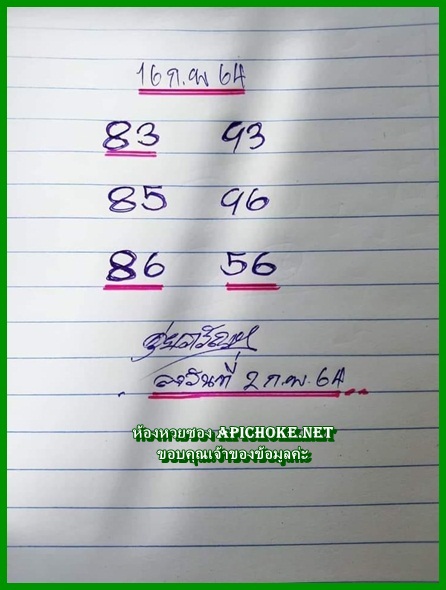 16 ก.พ 64
83 93
85 96
86 56
ลงวันที่ 2 ก.พ. 64
ห้องหวยซอง APICHOKE.NET
ขอบคุณเจ้าของข้อมูลค่ะ